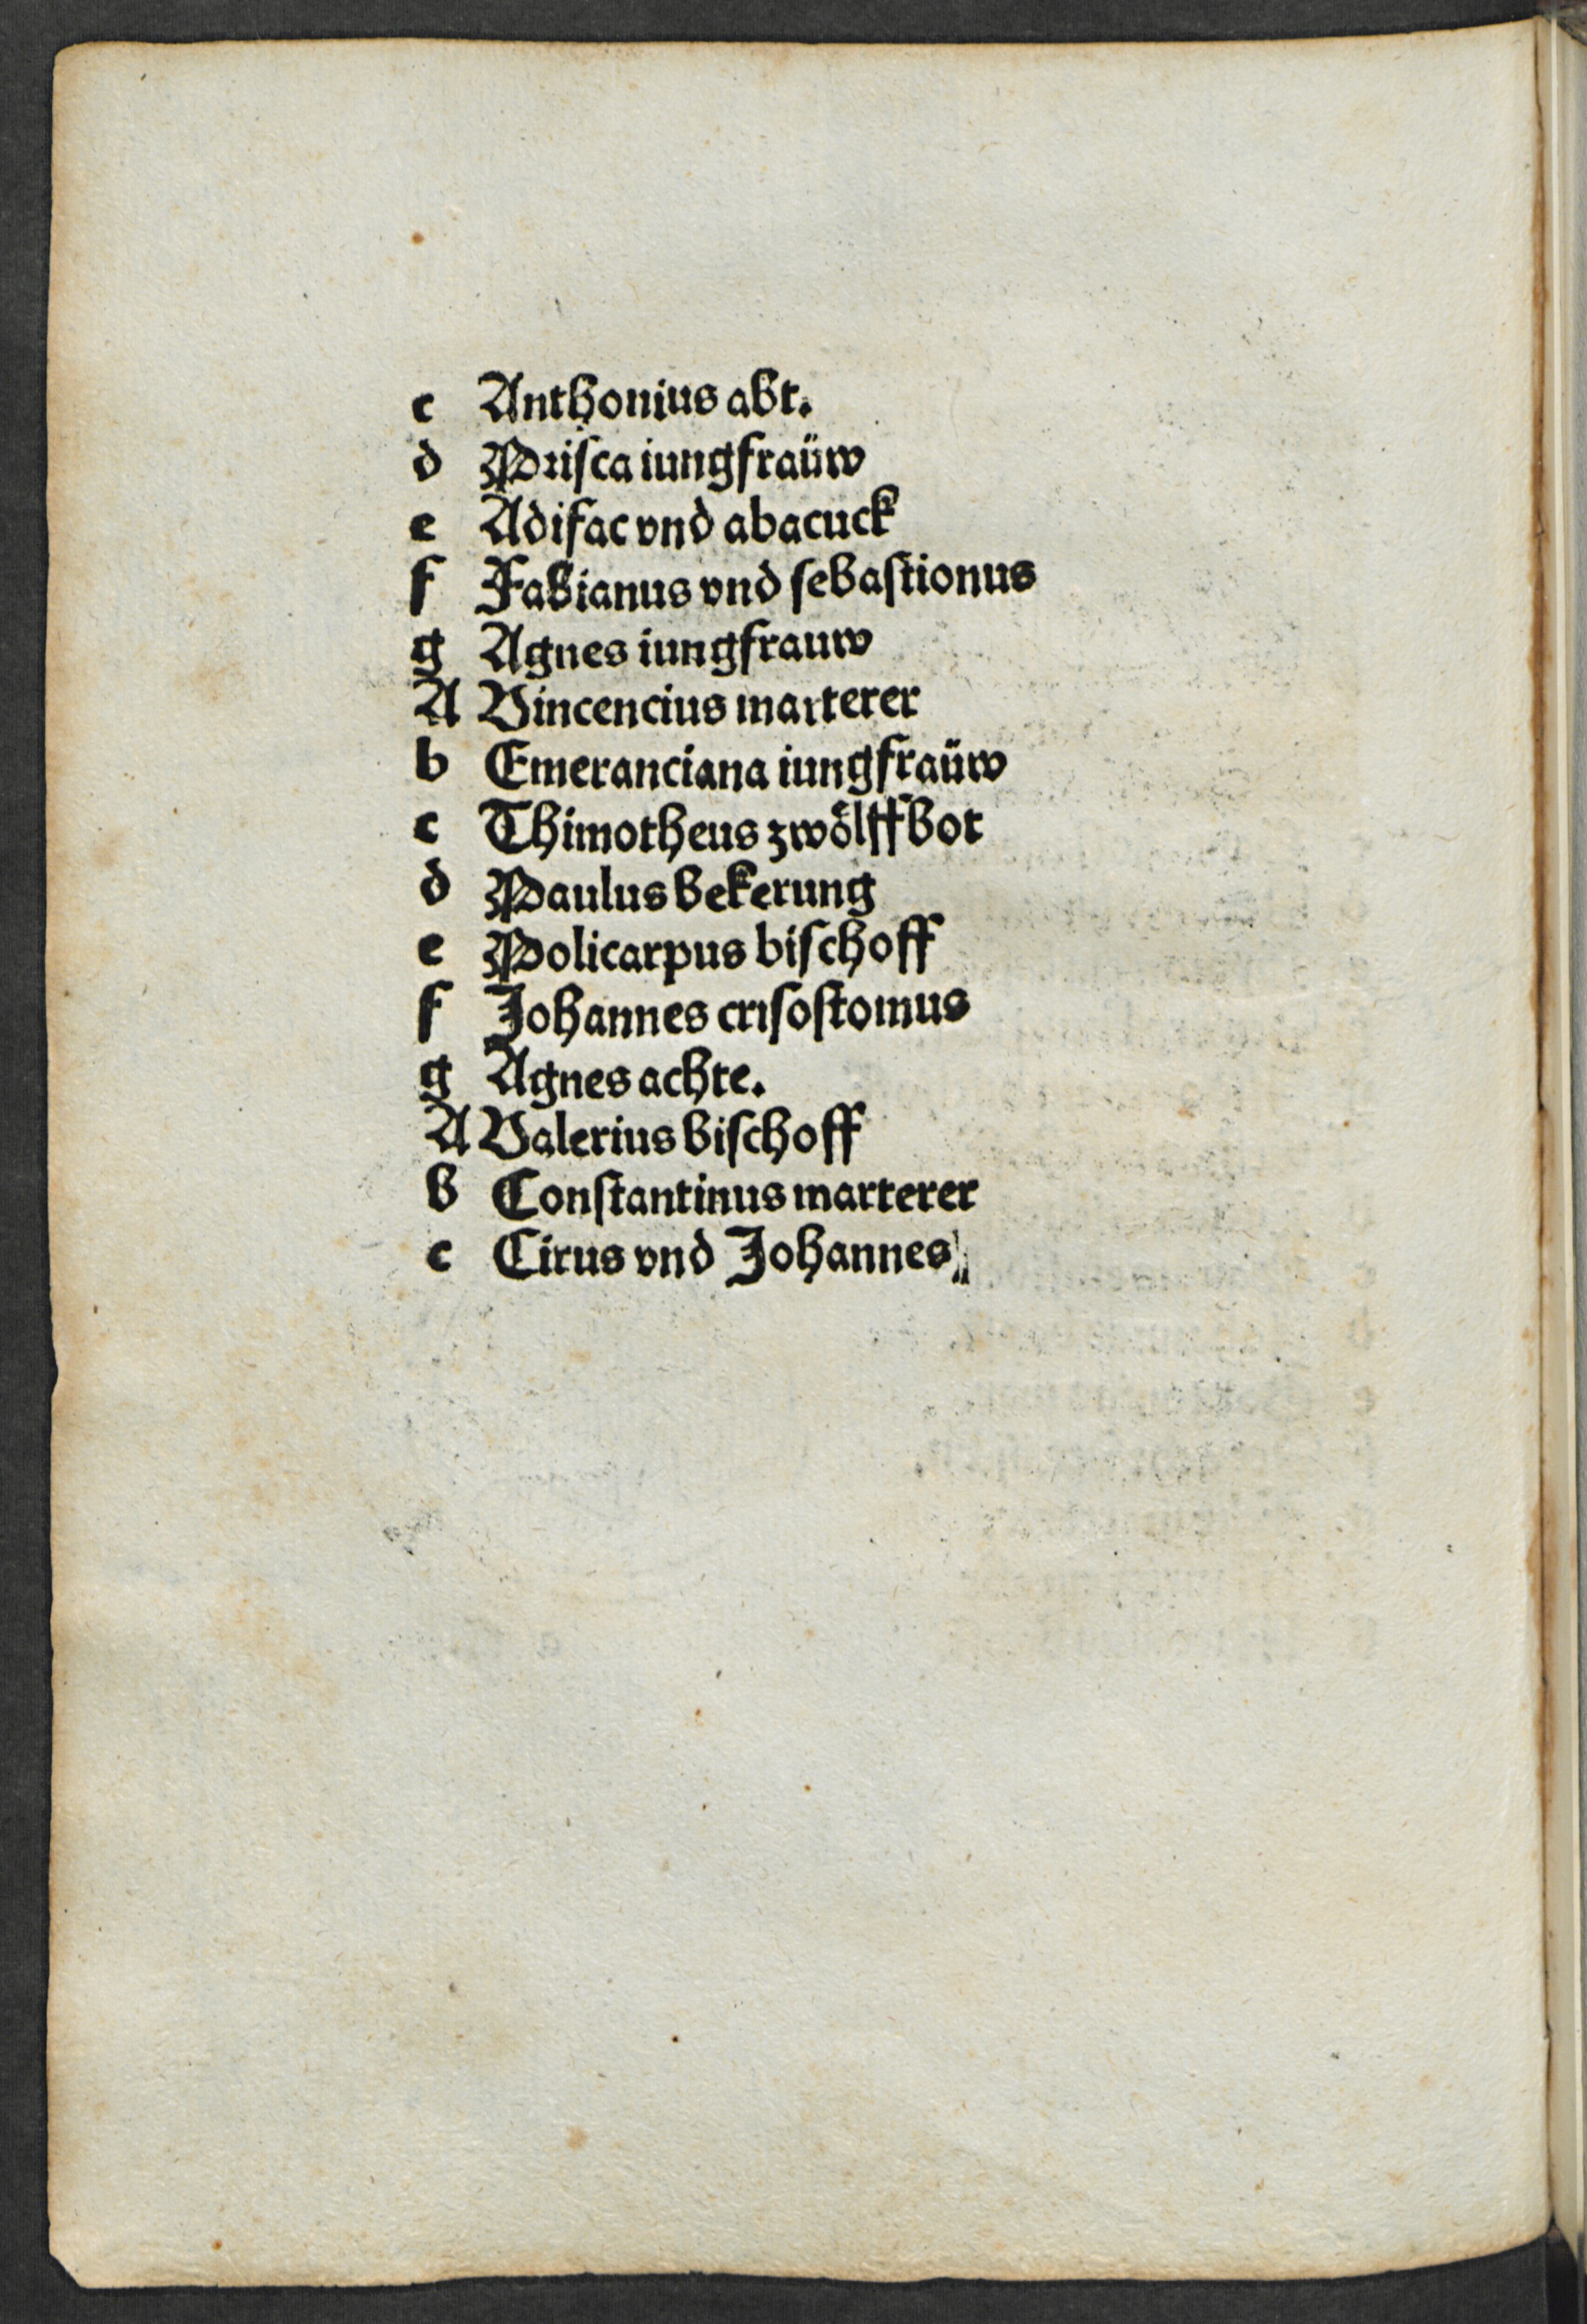 c Anthonius abt.
d Priſca iungfraüw
e Adifac vnd abacuck
f Fabianus vnd ſebaſtionus
g Agnes iungfrauw
A Vincencius marterer
b Emeranciana iungfraüw
c Thimotheus zwoͤlffbot
d Paulus bekerung
e Policarpus biſchoff
f Johannes criſoſtomus
g Agnes achte.
A Valerius biſchoff
b Conſtantinus marterer
c Cirus vnd Johannes